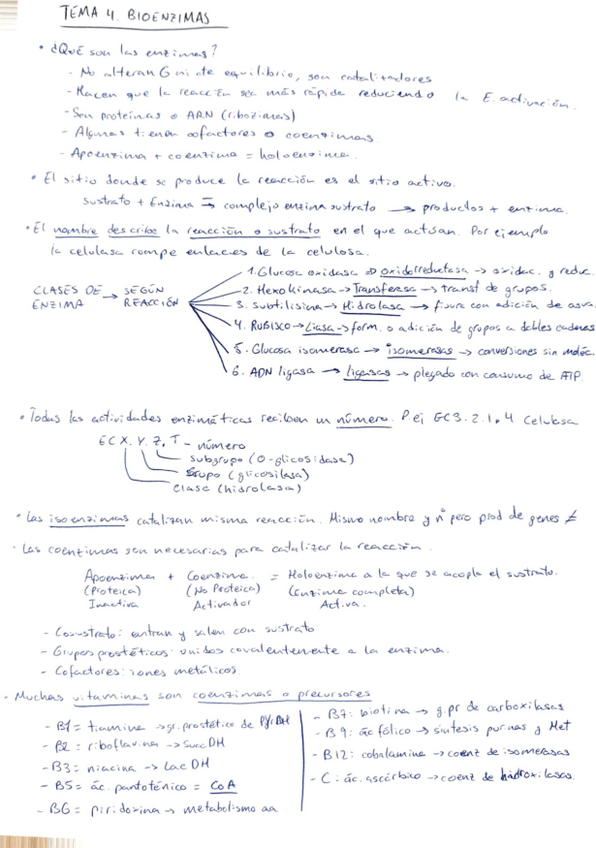 TEMA 4. BIOENZIMAS
• ¿Qué son las enzimas?
- No alteran G ni cte equilibrio, son catalizadores
- Hacen que la reacción sea más rápida reduciendo la E. activación.
- Son proteínas o ARN (ribozimas)
- Algunas tienen cofactores o coenzimas
- Apoenzima + coenzima = holoenzima.
• El sitio donde se produce la reacción es el sitio activo.
sustrato + Enzima ⇆ complejo enzima sustrato → productos + enzima.
• El nombre describe la reacción o sustrato en el que actúan. Por ejemplo
la celulasa rompe enlaces de la celulosa.
CLASES DE ENZIMA → SEGÚN REACCIÓN
1. Glucosa oxidasa → oxidorreductasa → oxidac. y reduc.
2. Hexokinasa → Transferasa → transf de grupos.
3. Subtilisina → Hidrolasa → fisura con adición de agua.
4. RUBISCO → Liasa → form. o adición de grupos a dobles cadenas
5. Glucosa isomerasa → isomerasas → conversiones sin modéc.
6. ADN ligasa → ligasas → plegado con consumo de ATP.
• Todas las actividades enzimáticas reciben un número. P ej EC3.2.1.4 Celulasa
EC X. Y. Z. T - número
subgrupo (O-glicosidasa)
Grupo (glicosilasa)
Clase (hidrolasa)
• Las isoenzimas catalizan misma reacción. Mismo nombre y nº pero prod de genes ≠
· Las coenzimas son necesarias para catalizar la reacción.
Apoenzima + Coenzima = Holoenzima a la que se acopla el sustrato.
(Proteica) (No Proteica) (Enzima completa)
Inactiva Activador Activa.
- Cosustrato: entran y salen con sustrato
- Grupos prostéticos: unidos covalentemente a la enzima.
- Cofactores: iones metálicos.
- Muchas vitaminas son coenzimas o precursores
- B1 = tiamina → gr. prostético de PyrDH
- B2 = riboflavina → SuccDH
- B3 = niacina → Lac DH
- B5 = ác. pantoténico = CoA
- B6 = piridoxina → metabolismo aa
- B7: biotina → g.pr de carboxilasas
- B9: ác fólico → síntesis purinas y Met
- B12: cobalamina → coenz de isomerasas
- C: ác. ascórbico → coenz de hidroxilasas.